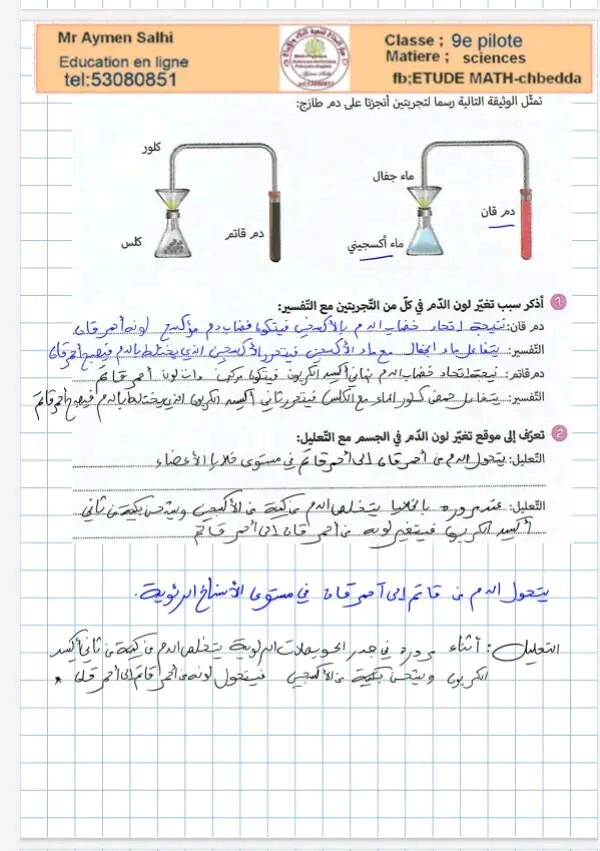 Mr Aymen Salhi
Education en ligne
tel:53080851
Classe ; 9e pilote
Matiere ; sciences
fb;ETUDE MATH-chbedda
تمثّل الوثيقة التالية رسما لتجربتين أنجزتا على دم طازج:
كلور
ماء جفال
دم قان
دم قاتم
كلس
ماء أكسجيني
1 أذكر سبب تغيّر لون الدّم في كلّ من التّجربتين مع التّفسير:
دم قان: نتيجة اتحاد خضاب الدم بالأكسجين فيتكون خضاب دم مؤكسج لونه أحمر قان
التّفسير: يتفاعل ماء الجفال مع ماء الأكسجيني فيتحرر الأكسجين الذي يختلط بالدم فيصبح أحمر قان
دم قاتم: نتيجة اتحاد خضاب الدم بثاني أكسيد الكربون فيتكون مركب ذات لون أحمر قاتم
التّفسير: يتفاعل حمض كلور الماء مع الكلس فيتحرر ثاني أكسيد الكربون الذي يختلط بالدم فيصبح أحمر قاتم
2 تعرّف إلى موقع تغيّر لون الدّم في الجسم مع التّعليل:
التّعليل: يتحول الدم من أحمر قان إلى أحمر قاتم في مستوى خلايا الأعضاء
التّعليل: عند مروره بالخلايا يتخلص الدم من كمية من الأكسجين ويشحن بكمية من ثاني
أكسيد الكربون فيتغير لونه من أحمر قان إلى أحمر قاتم
يتحول الدم من قاتم إلى أحمر قان في مستوى الأسناخ الرئوية.
التعليل: أثناء مروره في جدر الحويصلات الرئوية يتخلص الدم من كمية من ثاني أكسيد
الكربون ويشحن بكمية من الأكسجين فيتحول لونه من أحمر قاتم إلى أحمر قان